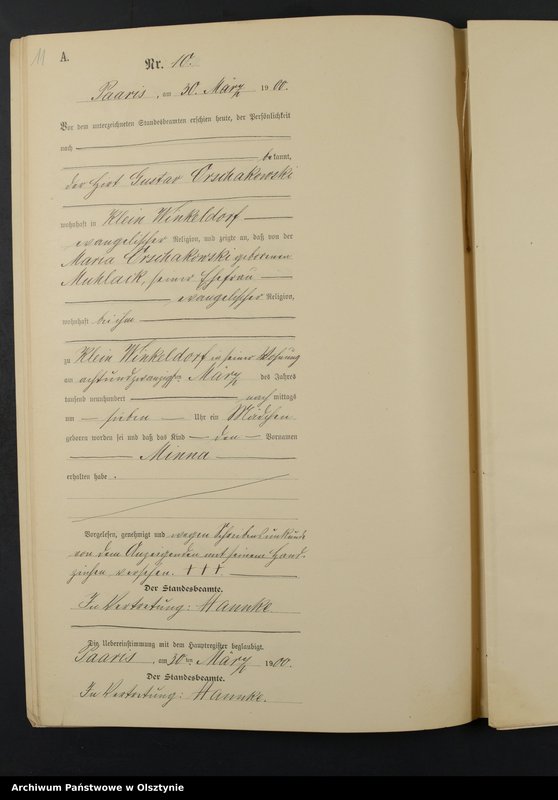 11
A.
Nr. 10.
Paaris, am 30. März 1900.
Vor dem unterzeichneten Standesbeamten erschien heute, der Persönlichkeit
nach
bekannt,
der Hirt Gustav Orschakowski
wohnhaft in Klein Winkeldorf
evangelischer Religion, und zeigte an, daß von der
Maria Orschakowski geborenen
Muhlack, seiner Ehefrau
evangelischer Religion,
wohnhaft bei ihm
zu Klein Winkeldorf in seiner Wohnung
am achtundzwanzigsten März des Jahres
tausend neunhundert nachmittags
um sieben Uhr ein Mädchen
geboren worden sei und daß das Kind den Vornamen
Minna
erhalten habe.
Vorgelesen, genehmigt und wegen Schreibensunkunde
von dem Anzeigenden mit seinem Hand-
zeichen versehen. +++
Der Standesbeamte.
In Vertretung: Hannke.
Die Uebereinstimmung mit dem Hauptregister beglaubigt.
Paaris, am 30ten März 1900.
Der Standesbeamte.
In Vertretung: Hannke.
Archiwum Państwowe w Olsztynie